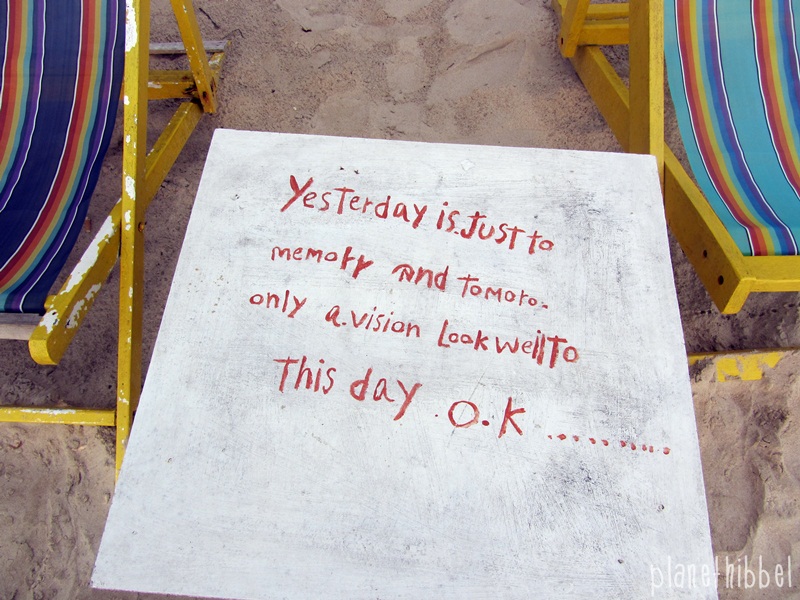 Yesterday is.Just to
memory And tomoro.
only a.vision Look well To
This day .O.K ...........
planethibbel